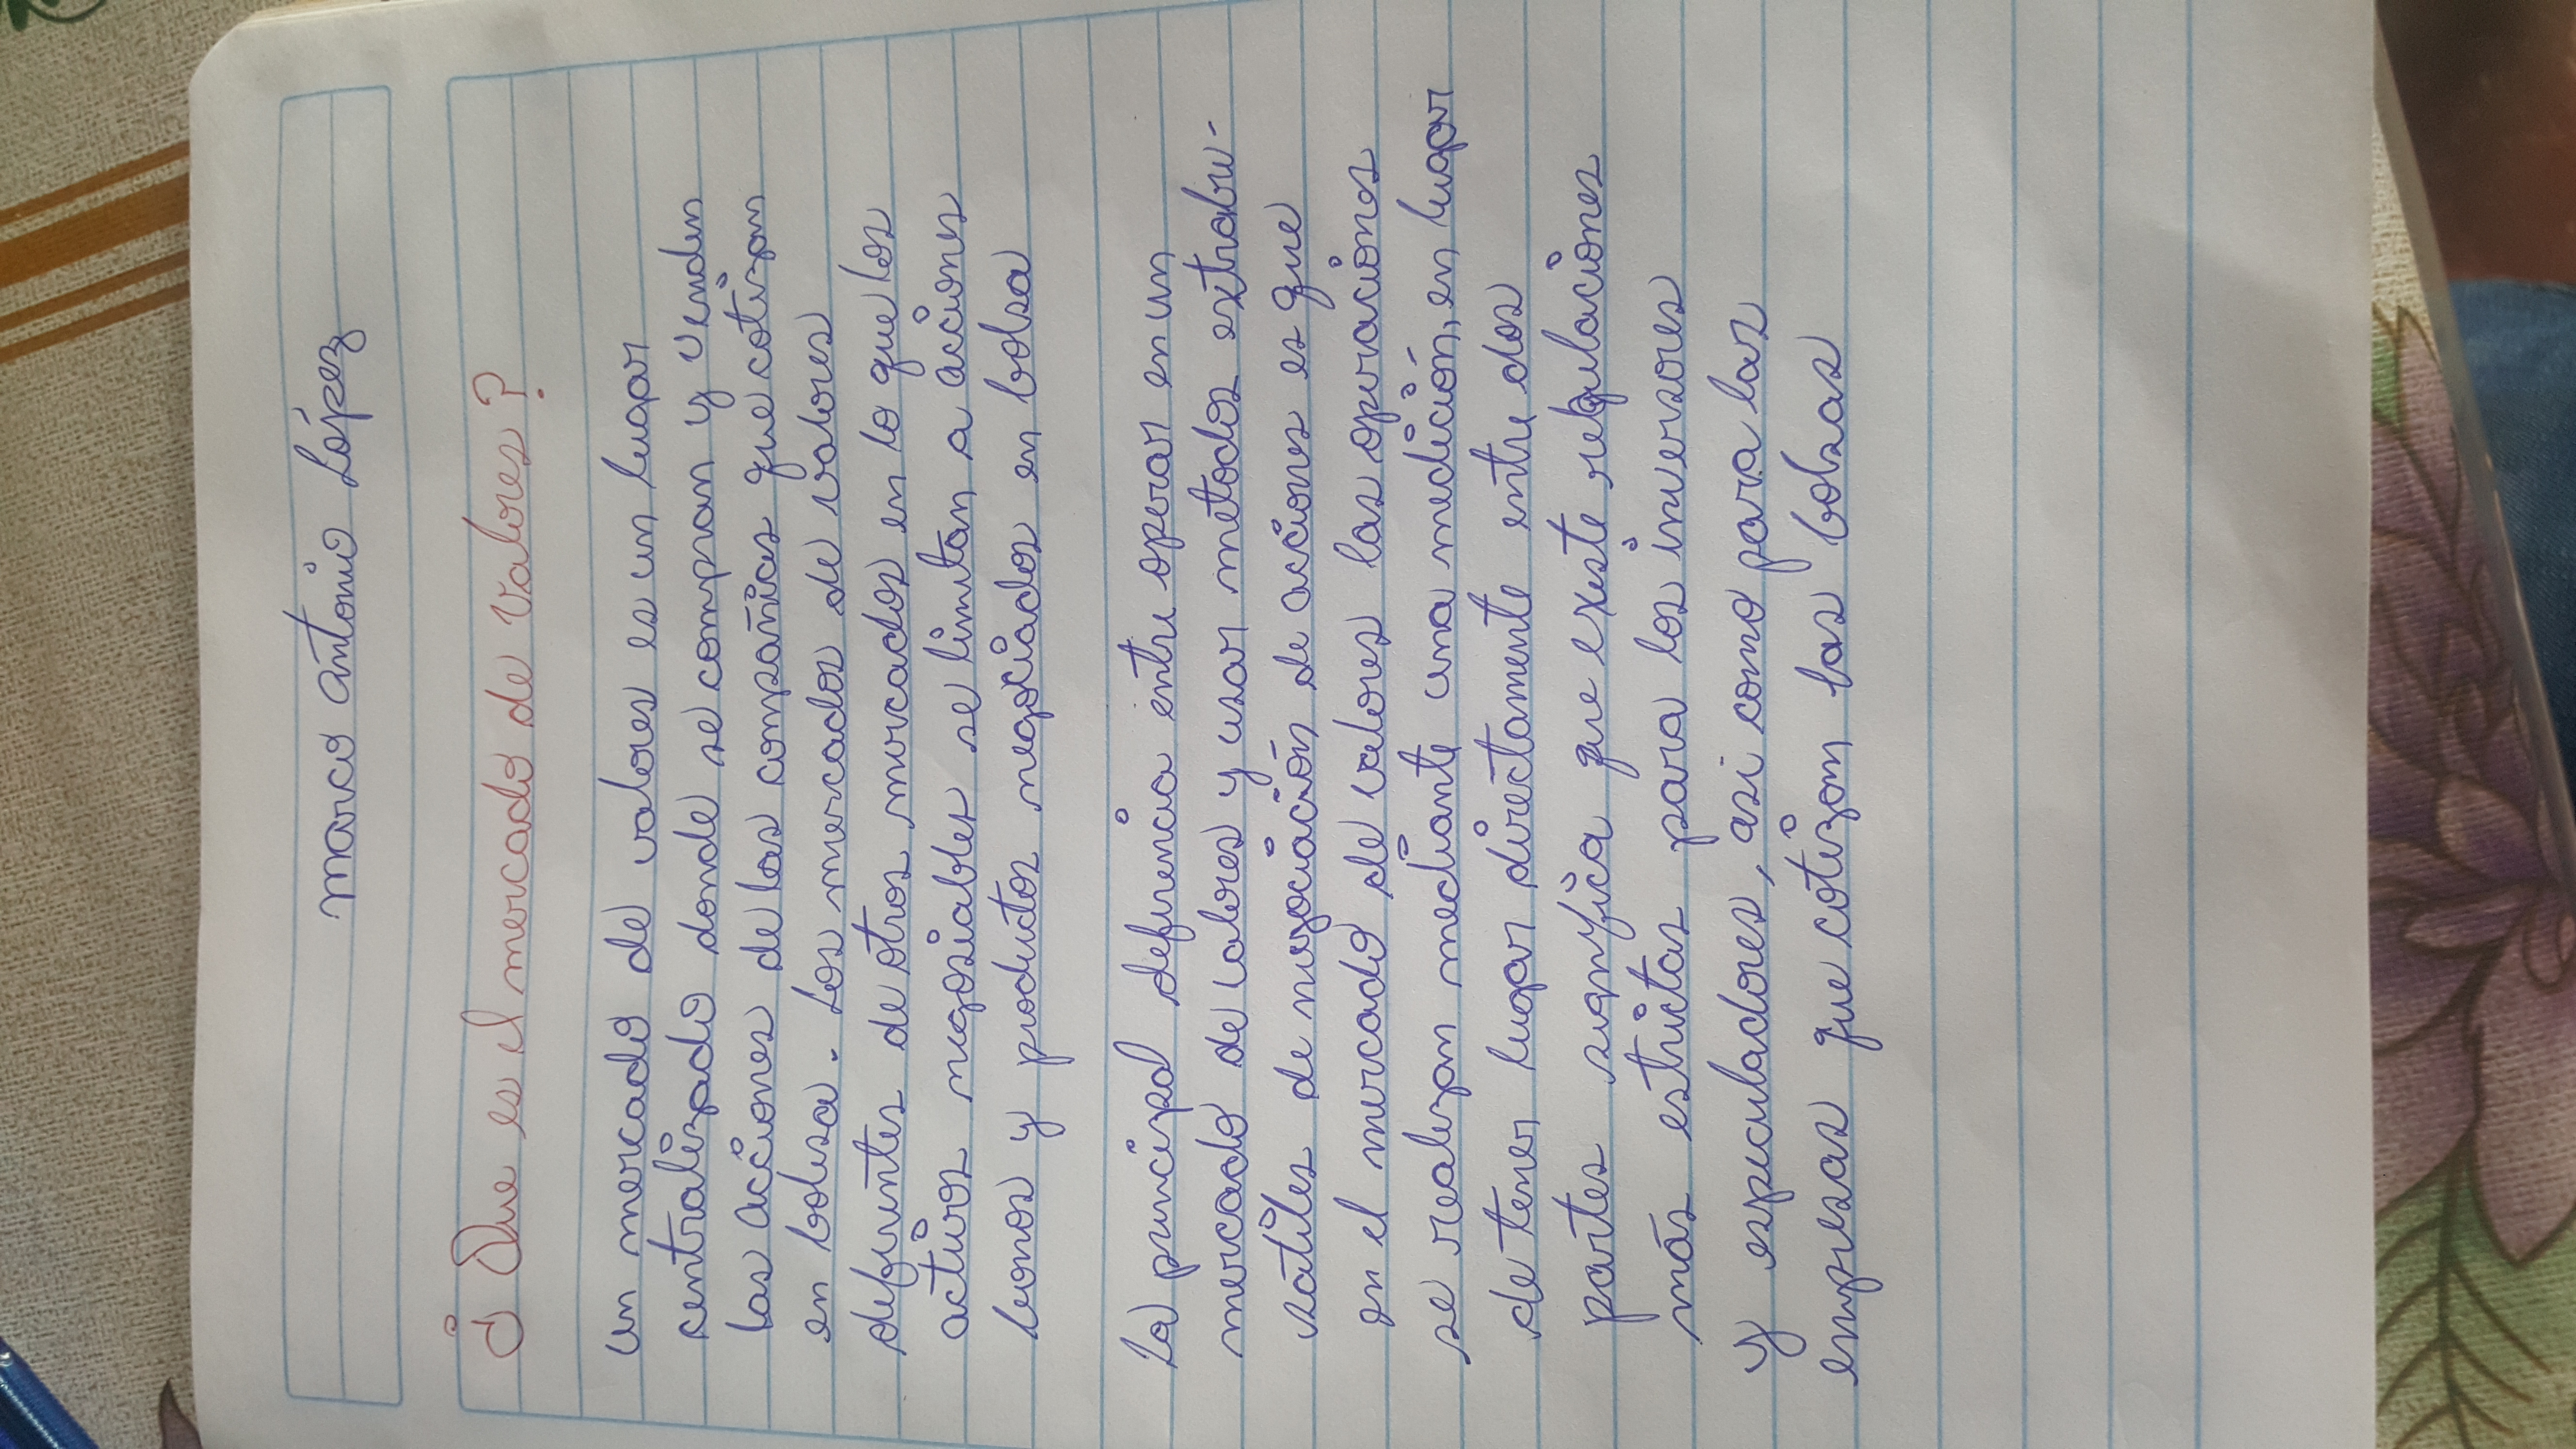 marco antonio López
¿Que es el mercado de Valores?
un mercado de valores es un lugar
centralizado donde se compran y venden
las acciones de las compañias que cotizan
en bolsa. Los mercados de valores
defirentes de otros mercados en lo que los
activos negosiables se limitan a acciones
bonos y productos negociados en bolsa
La principal defirencia entre operar en un
mercado de valores y usar metodos extrabu-
satiles de negociación de acciones es que
en el mercado de valores las operaciones
se realizan mediante una medición, en lugar
de tener lugar directamente entre dos
partes significa que existe regulaciones
más estrictas para los inversores
y especuladores, asi como para las
empresas que cotizam las bolsas